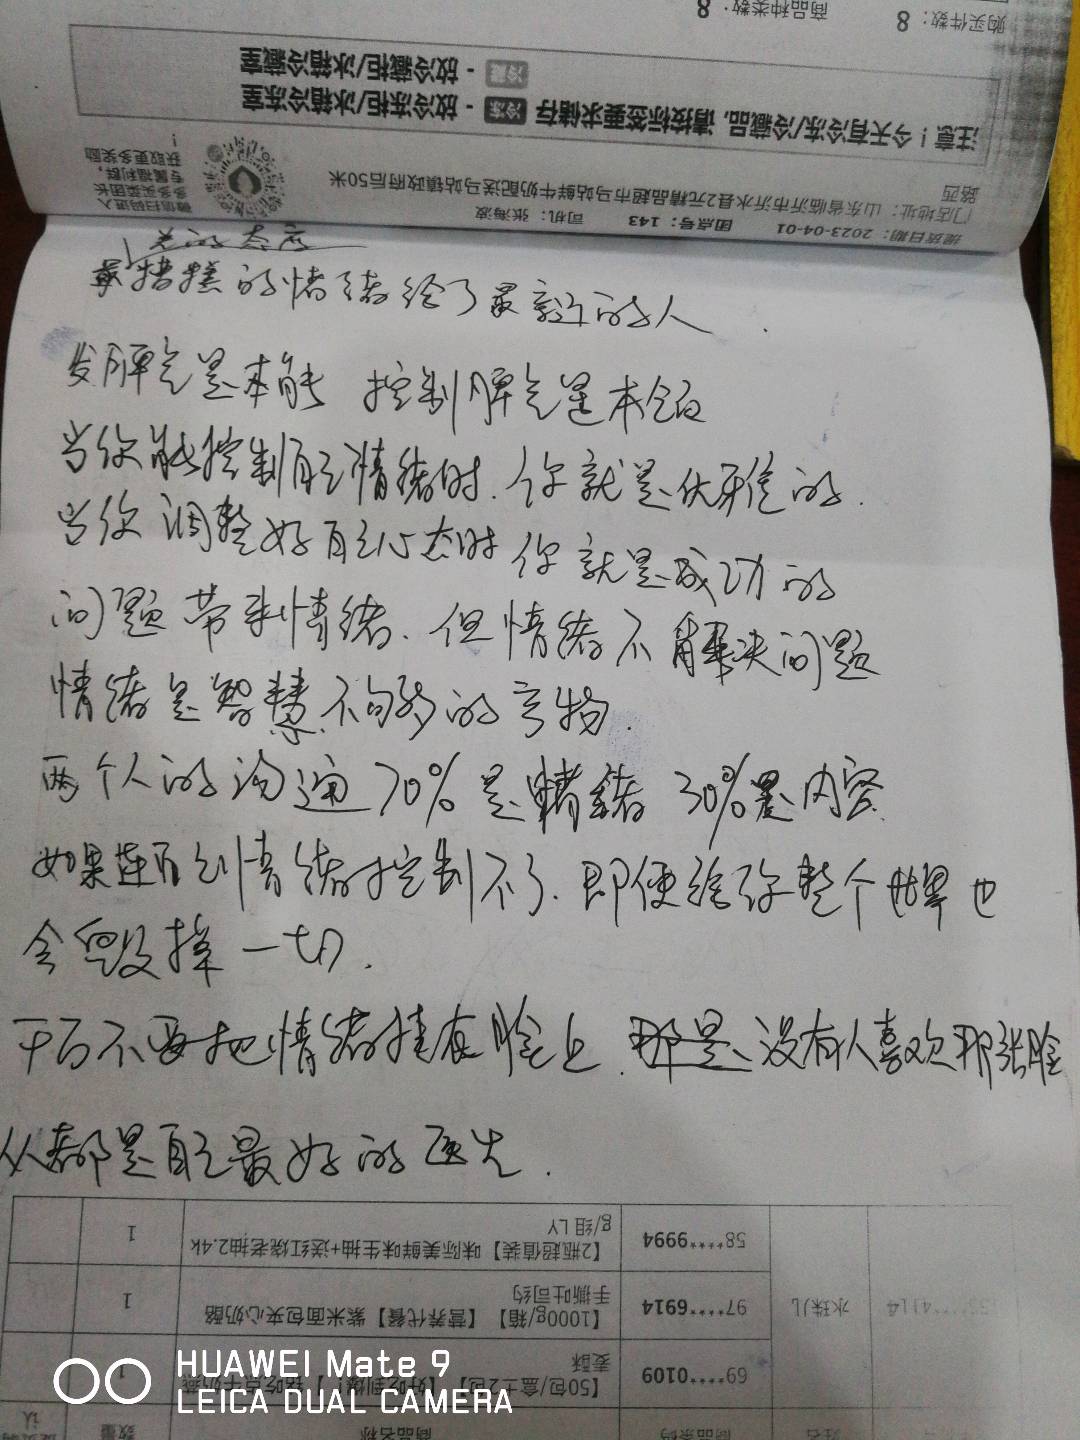 购买件数：8 商品种类数：8
注意！今天有冷冻/冷藏品，请按标签要求储存
冷冻 - 放冷冻柜/冰箱冷冻室
冷藏 - 放冷藏柜/冰箱冷藏室
微信扫码进入
多多买菜团长
专属福利群，
获取更多奖励
！
门店地址：山东省临沂市沂水县2元精品超市马站鲜牛奶配送马站镇政府后50米
路西
提货日期：2023-04-01 团点号：143 司机：张海波
差的态度
最糟糕的情绪给了最亲近的人
发脾气是本能 控制脾气是本领
当你能控制自己情绪时.你就是优雅的.
当你调整好自己心态时你就是成功的
问题带来情绪.但情绪不解决问题
情绪是智慧不够的产物.
两个人的沟通70%是情绪30%是内容
如果连自己情绪控制不了.即便给你整个世界也
会毁掉一切.
千万不要把情绪挂在脸上.那是没有人喜欢那张脸
人都是自己最好的医生.
58****9994 【2瓶超值装】味际美鲜味生抽+送红烧老抽2.4k
g/组 LY 1
水珠儿 97****6914 【1000g/箱】【营养代餐】紫米面包夹心奶酪
手撕吐司约 1
69****0109
麦酥 1
商品条码 商品名称 数量
HUAWEI Mate 9
LEICA DUAL CAMERA